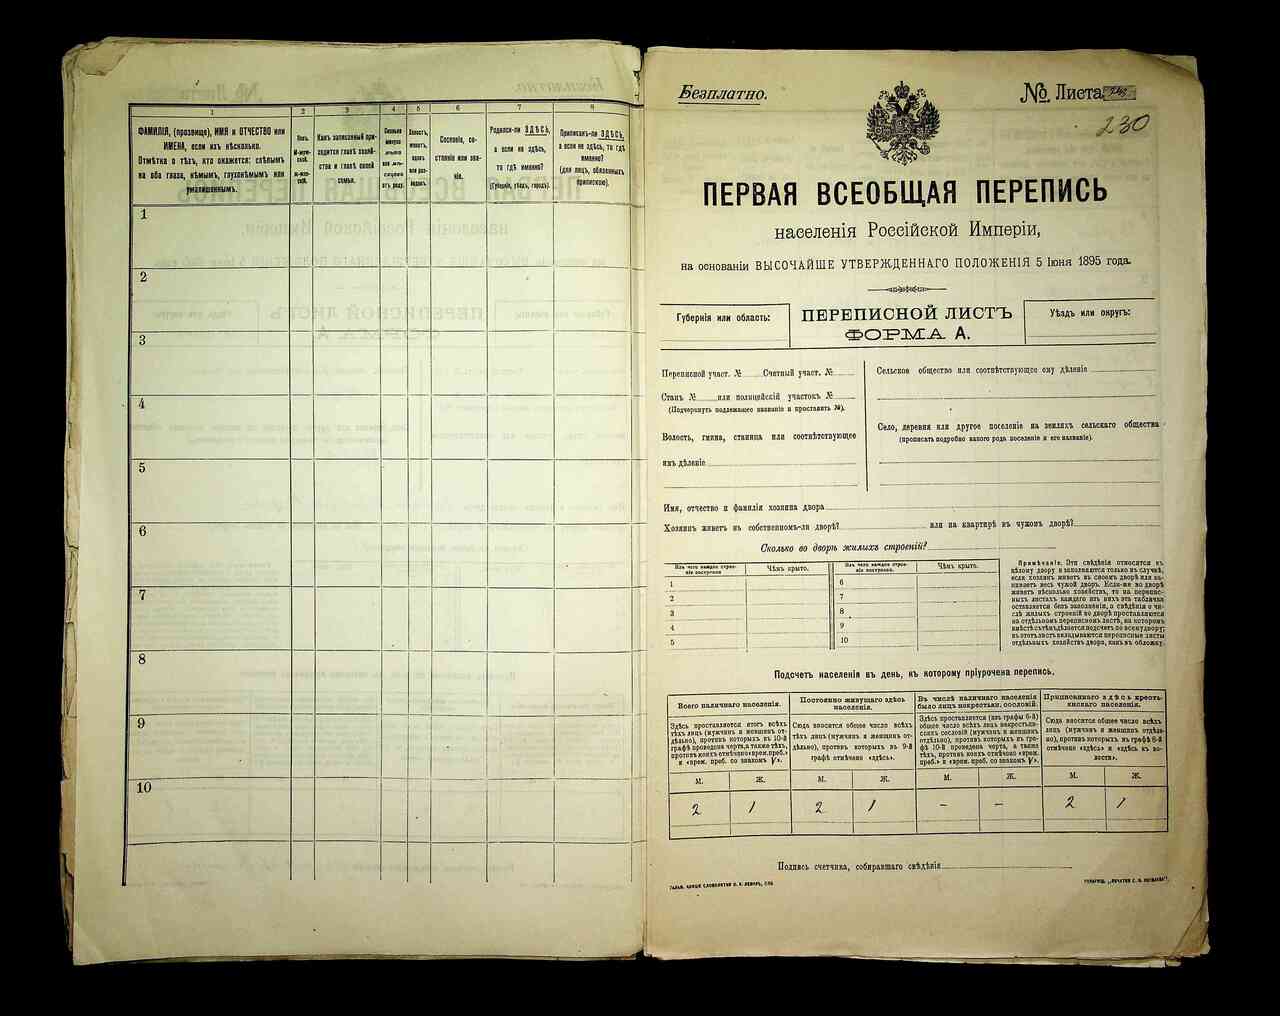 1
2
3
4
5
6
7
8
ФАМИЛІЯ, (прозвище), ИМЯ и ОТЧЕСТВО или
ИМЕНА, если ихъ нѣсколько.
Отмѣтка о тѣхъ, кто окажется: слѣпымъ
на оба глаза, нѣмымъ, глухонѣмымъ или
умалишеннымъ.
Полъ.
М-муж-
ской.
Ж-жен-
скій.
Какъ записанный при-
ходится главѣ хозяй-
ства и главѣ своей
семьи.
Сколько
минуло
лѣтъ
или мѣ-
сяцевъ
отъ роду.
Холостъ,
женатъ,
вдовъ
или раз-
веденъ.
Сословіе, со-
стояніе или зва-
ніе.
Родился-ли ЗДѢСЬ,
а если не здѣсь,
то гдѣ именно?
(Губернія, уѣздъ, городъ).
Приписанъ-ли ЗДѢСЬ,
а если не здѣсь, то гдѣ
именно?
(для лицъ, обязанныхъ
припискою).
1
2
3
4
5
6
7
8
9
10
Безплатно.
№ Листа
230
ПЕРВАЯ ВСЕОБЩАЯ ПЕРЕПИСЬ
населенія Россійской Имперіи,
на основаніи ВЫСОЧАЙШЕ УТВЕРЖДЕННАГО ПОЛОЖЕНІЯ 5 Іюня 1895 года.
Губернія или область:
ПЕРЕПИСНОЙ ЛИСТЪ
ФОРМА А.
Уѣздъ или округъ:
Переписной участ. № Счетный участ. №
Станъ № или полицейскій участокъ №
(Подчеркнуть подлежащее названіе и проставить №).
Волость, гмина, станица или соотвѣтствующее
имъ дѣленіе
Сельское общество или соотвѣтствующее ему дѣленіе
Село, деревня или другое поселеніе на земляхъ сельскаго общества
(прописать подробно какого рода поселеніе и его названіе).
Имя, отчество и фамилія хозяина двора
Хозяинъ живетъ въ собственномъ-ли дворѣ? или на квартирѣ въ чужомъ дворѣ?
Сколько во дворѣ жилыхъ строеній?
Изъ чего каждое строе-
ніе построено.
Чѣмъ крыто.
1
2
3
4
5
Изъ чего каждое строе-
ніе построено.
Чѣмъ крыто.
6
7
8
9
10
Примѣчаніе. Эти свѣдѣнія относятся къ
цѣлому двору и заполняются только въ случаѣ,
если хозяинъ живетъ въ своемъ дворѣ или за-
нимаетъ весь чужой дворъ. Если-же во дворѣ
живетъ нѣсколько хозяйствъ, то на перепис-
ныхъ листахъ каждаго изъ нихъ эта табличка
оставляется безъ заполненія, а свѣдѣнія о чи-
слѣ жилыхъ строеній во дворѣ проставляются
на отдѣльномъ переписномъ листѣ, на которомъ
вмѣстѣ съ тѣмъ дѣлается подсчетъ по всему двору;
въ этотъ листъ вкладываются переписные листы
отдѣльныхъ хозяйствъ двора, какъ въ обложку.
Подсчетъ населенія въ день, къ которому пріурочена перепись.
Всего наличнаго населенія.
Здѣсь проставляется итогъ всѣхъ
тѣхъ лицъ (мужчинъ и женщинъ от-
дѣльно), противъ которыхъ въ 10-й
графѣ проведена черта, а также тѣхъ,
противъ коихъ отмѣчено «врем. преб.»
и «врем. преб. со знакомъ V».
Постоянно живущаго здѣсь
населенія.
Сюда вносится общее число всѣхъ
тѣхъ лицъ (мужчинъ и женщинъ от-
дѣльно), противъ которыхъ въ 9-й
графѣ отмѣчено «здѣсь».
Въ числѣ наличнаго населенія
было лицъ некрестьян. сословій.
Здѣсь проставляется (изъ графы 6-й)
общее число всѣхъ лицъ некрестьян-
скихъ сословій (мужчинъ и женщинъ
отдѣльно), противъ которыхъ въ гра-
фѣ 10-й проведена черта, а также
тѣхъ, противъ коихъ отмѣчено «врем.
преб.» и «врем. преб. со знакомъ V».
Приписаннаго здѣсь кресть-
янскаго населенія.
Сюда вносится общее число всѣхъ
лицъ (мужчинъ и женщинъ отдѣль-
но), противъ которыхъ въ графѣ 8-й
отмѣчено «здѣсь» и «здѣсь въ во-
лости».
М. Ж. М. Ж. М. Ж. М. Ж.
2 1 2 1 - - 2 1
Подпись счетчика, собиравшаго свѣдѣнія